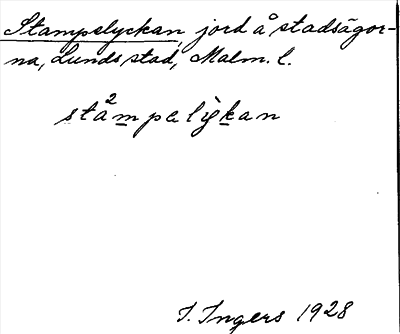 Stampelyckan, jord å stadsägor-
na, Lunds stad, Malm. l.
stå²mpelỳkan
I. Ingers 1928